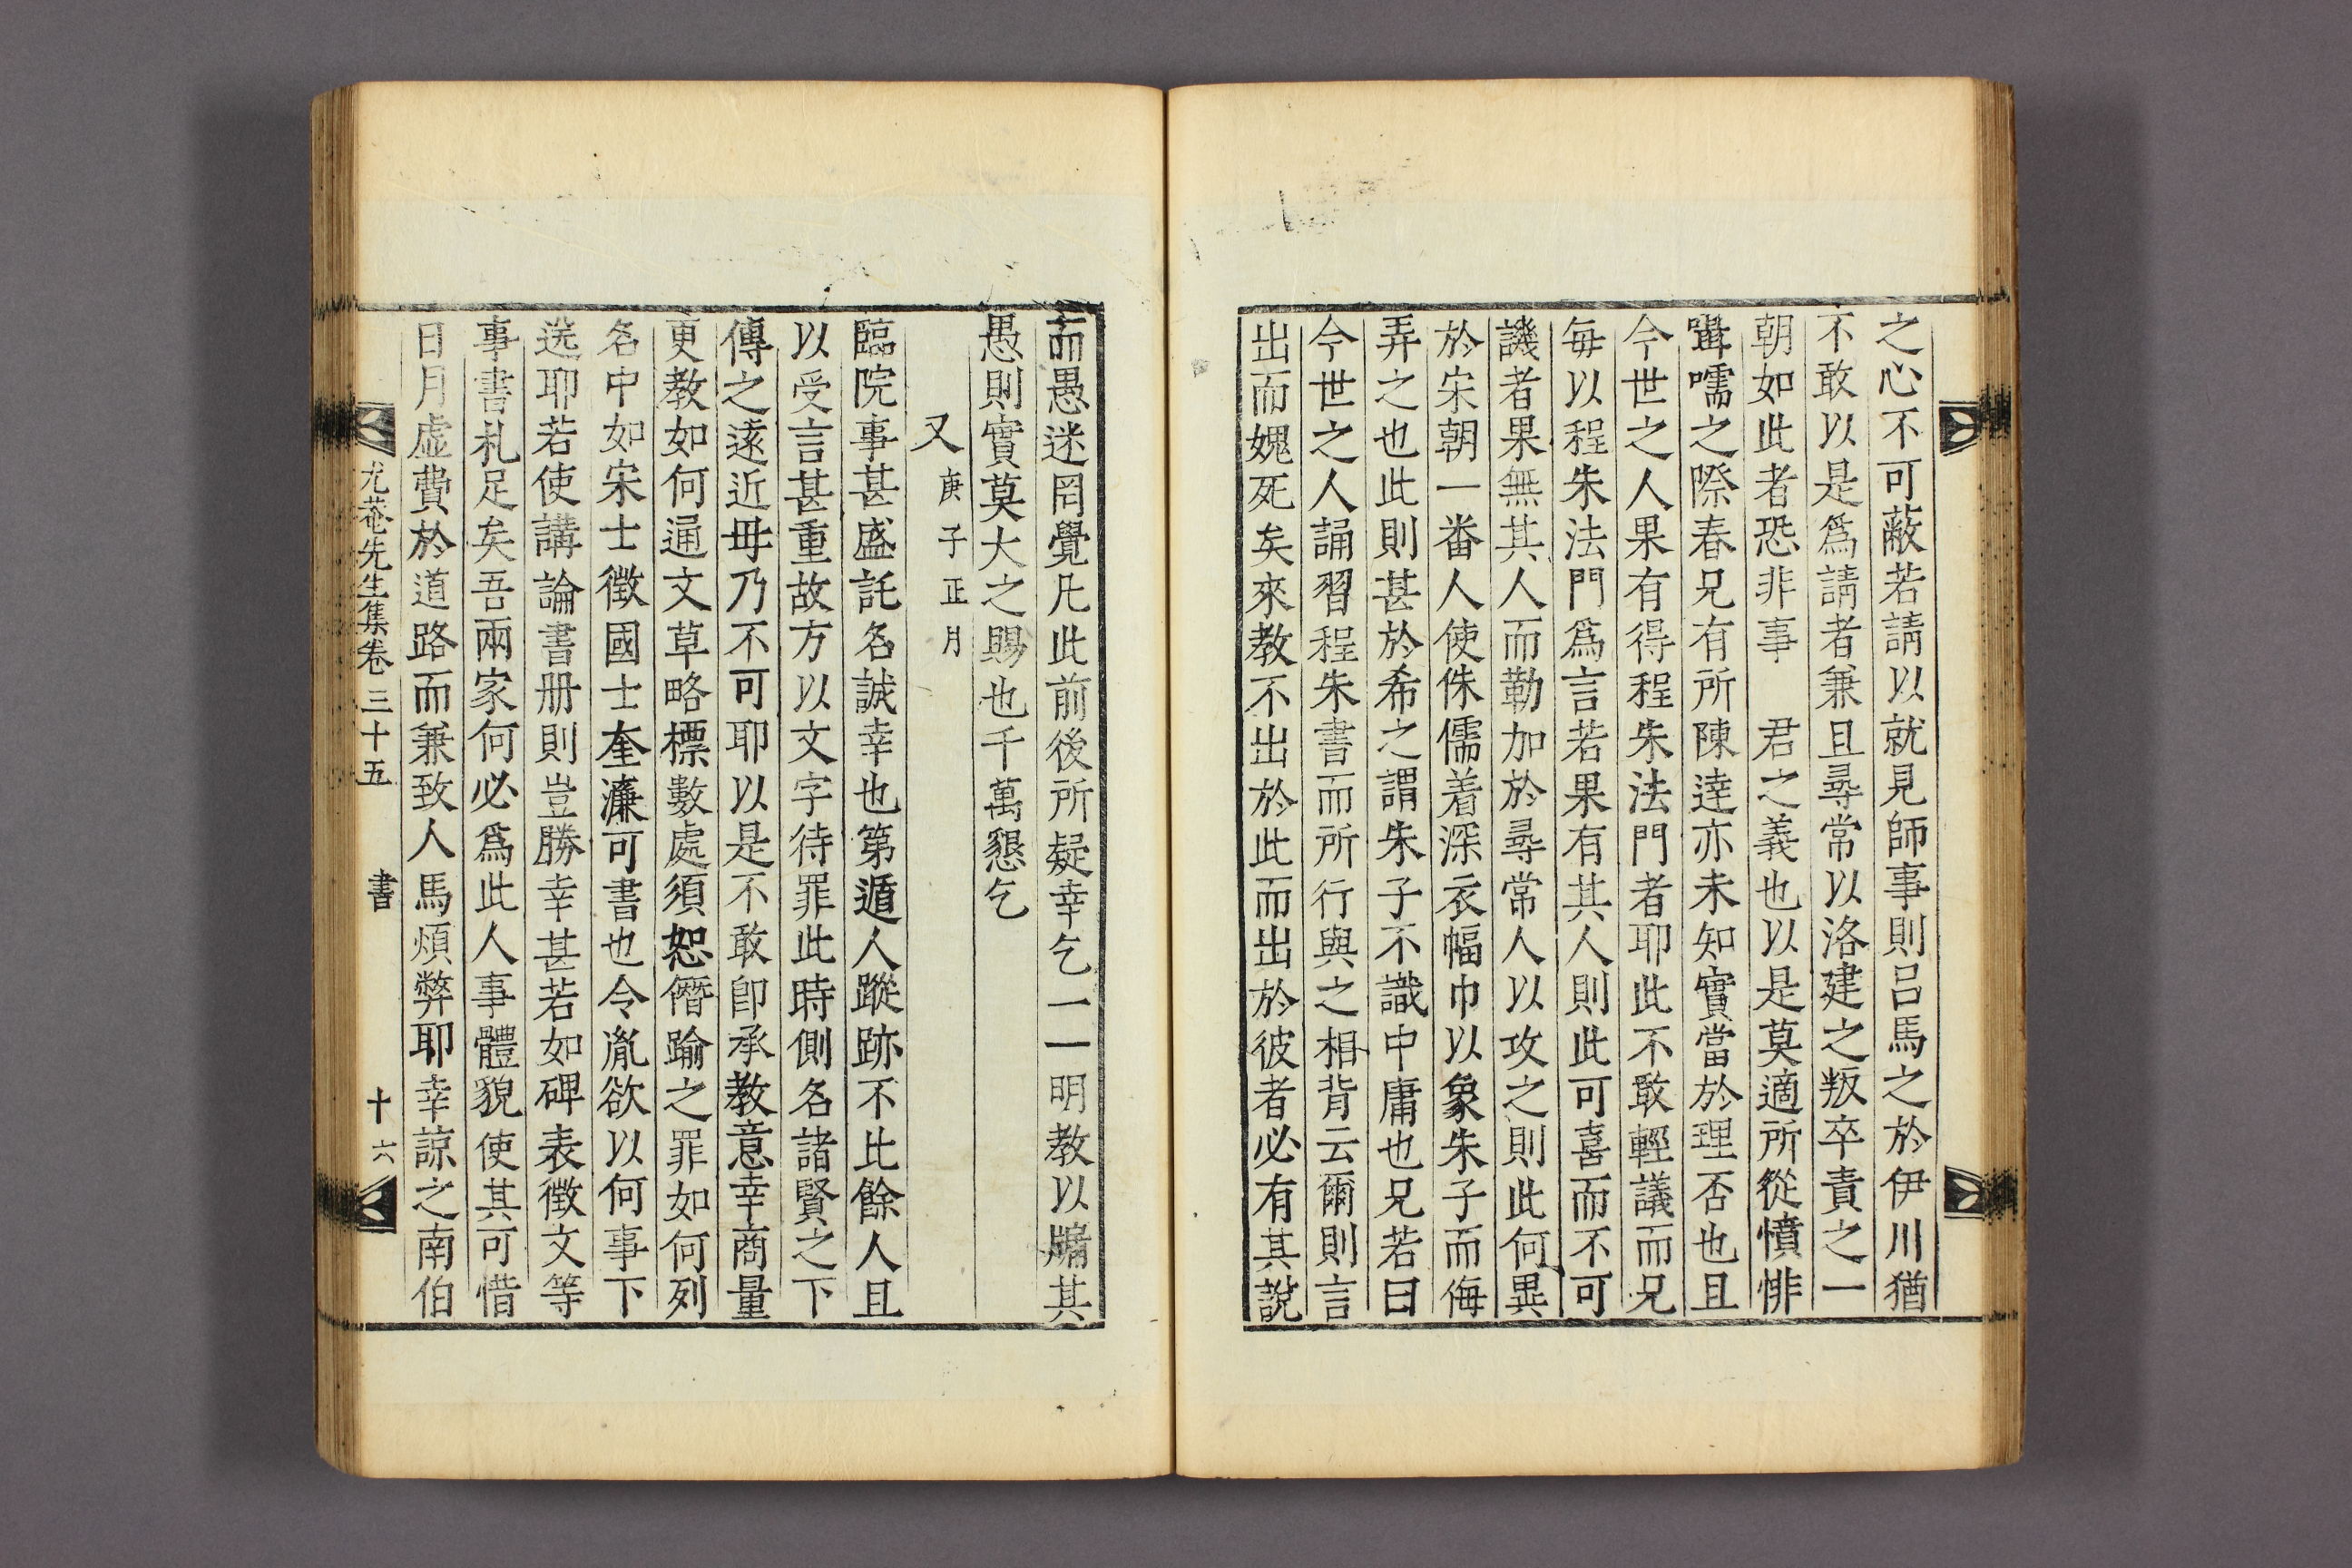 之心不可蔽若請以就見師事則呂馬之於伊川猶
不敢以是爲請者兼且尋常以洛建之叛卒責之一
朝如此者恐非事　君之義也以是莫適所從憤悱
囁嚅之際春兄有所陳達亦未知實當於理否也且
今世之人果有得程朱法門者耶此不敢輕議而兄
每以程朱法門爲言若果有其人則此可喜而不可
譏者果無其人而勒加於尋常人以攻之則此何異
於宋朝一番人使侏儒着深衣幅巾以象朱子而侮
弄之也此則甚於希之謂朱子不識中庸也兄若曰
今世之人誦習程朱書而所行與之相背云爾則言
出而媿死矣來教不出於此而出於彼者必有其說
而愚迷罔覺凡此前後所疑幸乞一一明教以牖其
愚則實莫大之賜也千萬懇乞
又 庚子正月
臨院事甚盛託名誠幸也第遁人蹤跡不比餘人且
以受言甚重故方以文字待罪此時側名諸賢之下
傳之遠近毋乃不可耶以是不敢卽承教意幸商量
更教如何通文草略標數處須恕僭踰之罪如何列
名中如宋士徵國士奎濂可書也令胤欲以何事下
送耶若使講論書册則豈勝幸甚若如碑表徵文等
事書札足矣吾兩家何必爲此人事體貌使其可惜
日月虛費於道路而兼致人馬煩弊耶幸諒之南伯
尤菴先生集卷三十五　書　十六